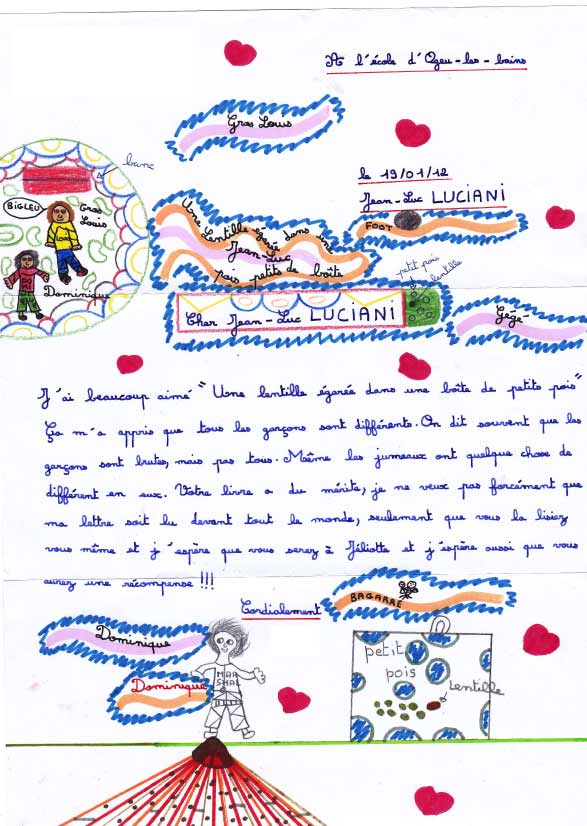 A l'école d'Ogeu-les-bains
Gros Louis
le 19/01/12
Jean-Luc LUCIANI
banc
BIGLEU
Gros
Louis
Dominique
Une Lentille égarée dans une
Jean-Luc
pois petits de boîte
FOOT
petit pois
lentille
Cher Jean-Luc LUCIANI
Gégé
J'ai beaucoup aimé "Une lentille égarée dans une boîte de petits pois"
Ça m'a appris que tous les garçons sont différents. On dit souvent que les
garçons sont brutes, mais pas tous. Même les jumeaux ont quelque chose de
différent en eux. Votre livre a du mérite, je ne veux pas forcément que
ma lettre soit lu devant tout le monde, seulement que vous la lisiez
vous même et j'espère que vous serez à Jéliotte et j'espère aussi que vous
aurez une récompense !!!
Cordialement
BAGARRE
Dominique
Dominique
MAR
SHAL
petit
pois
Lentille